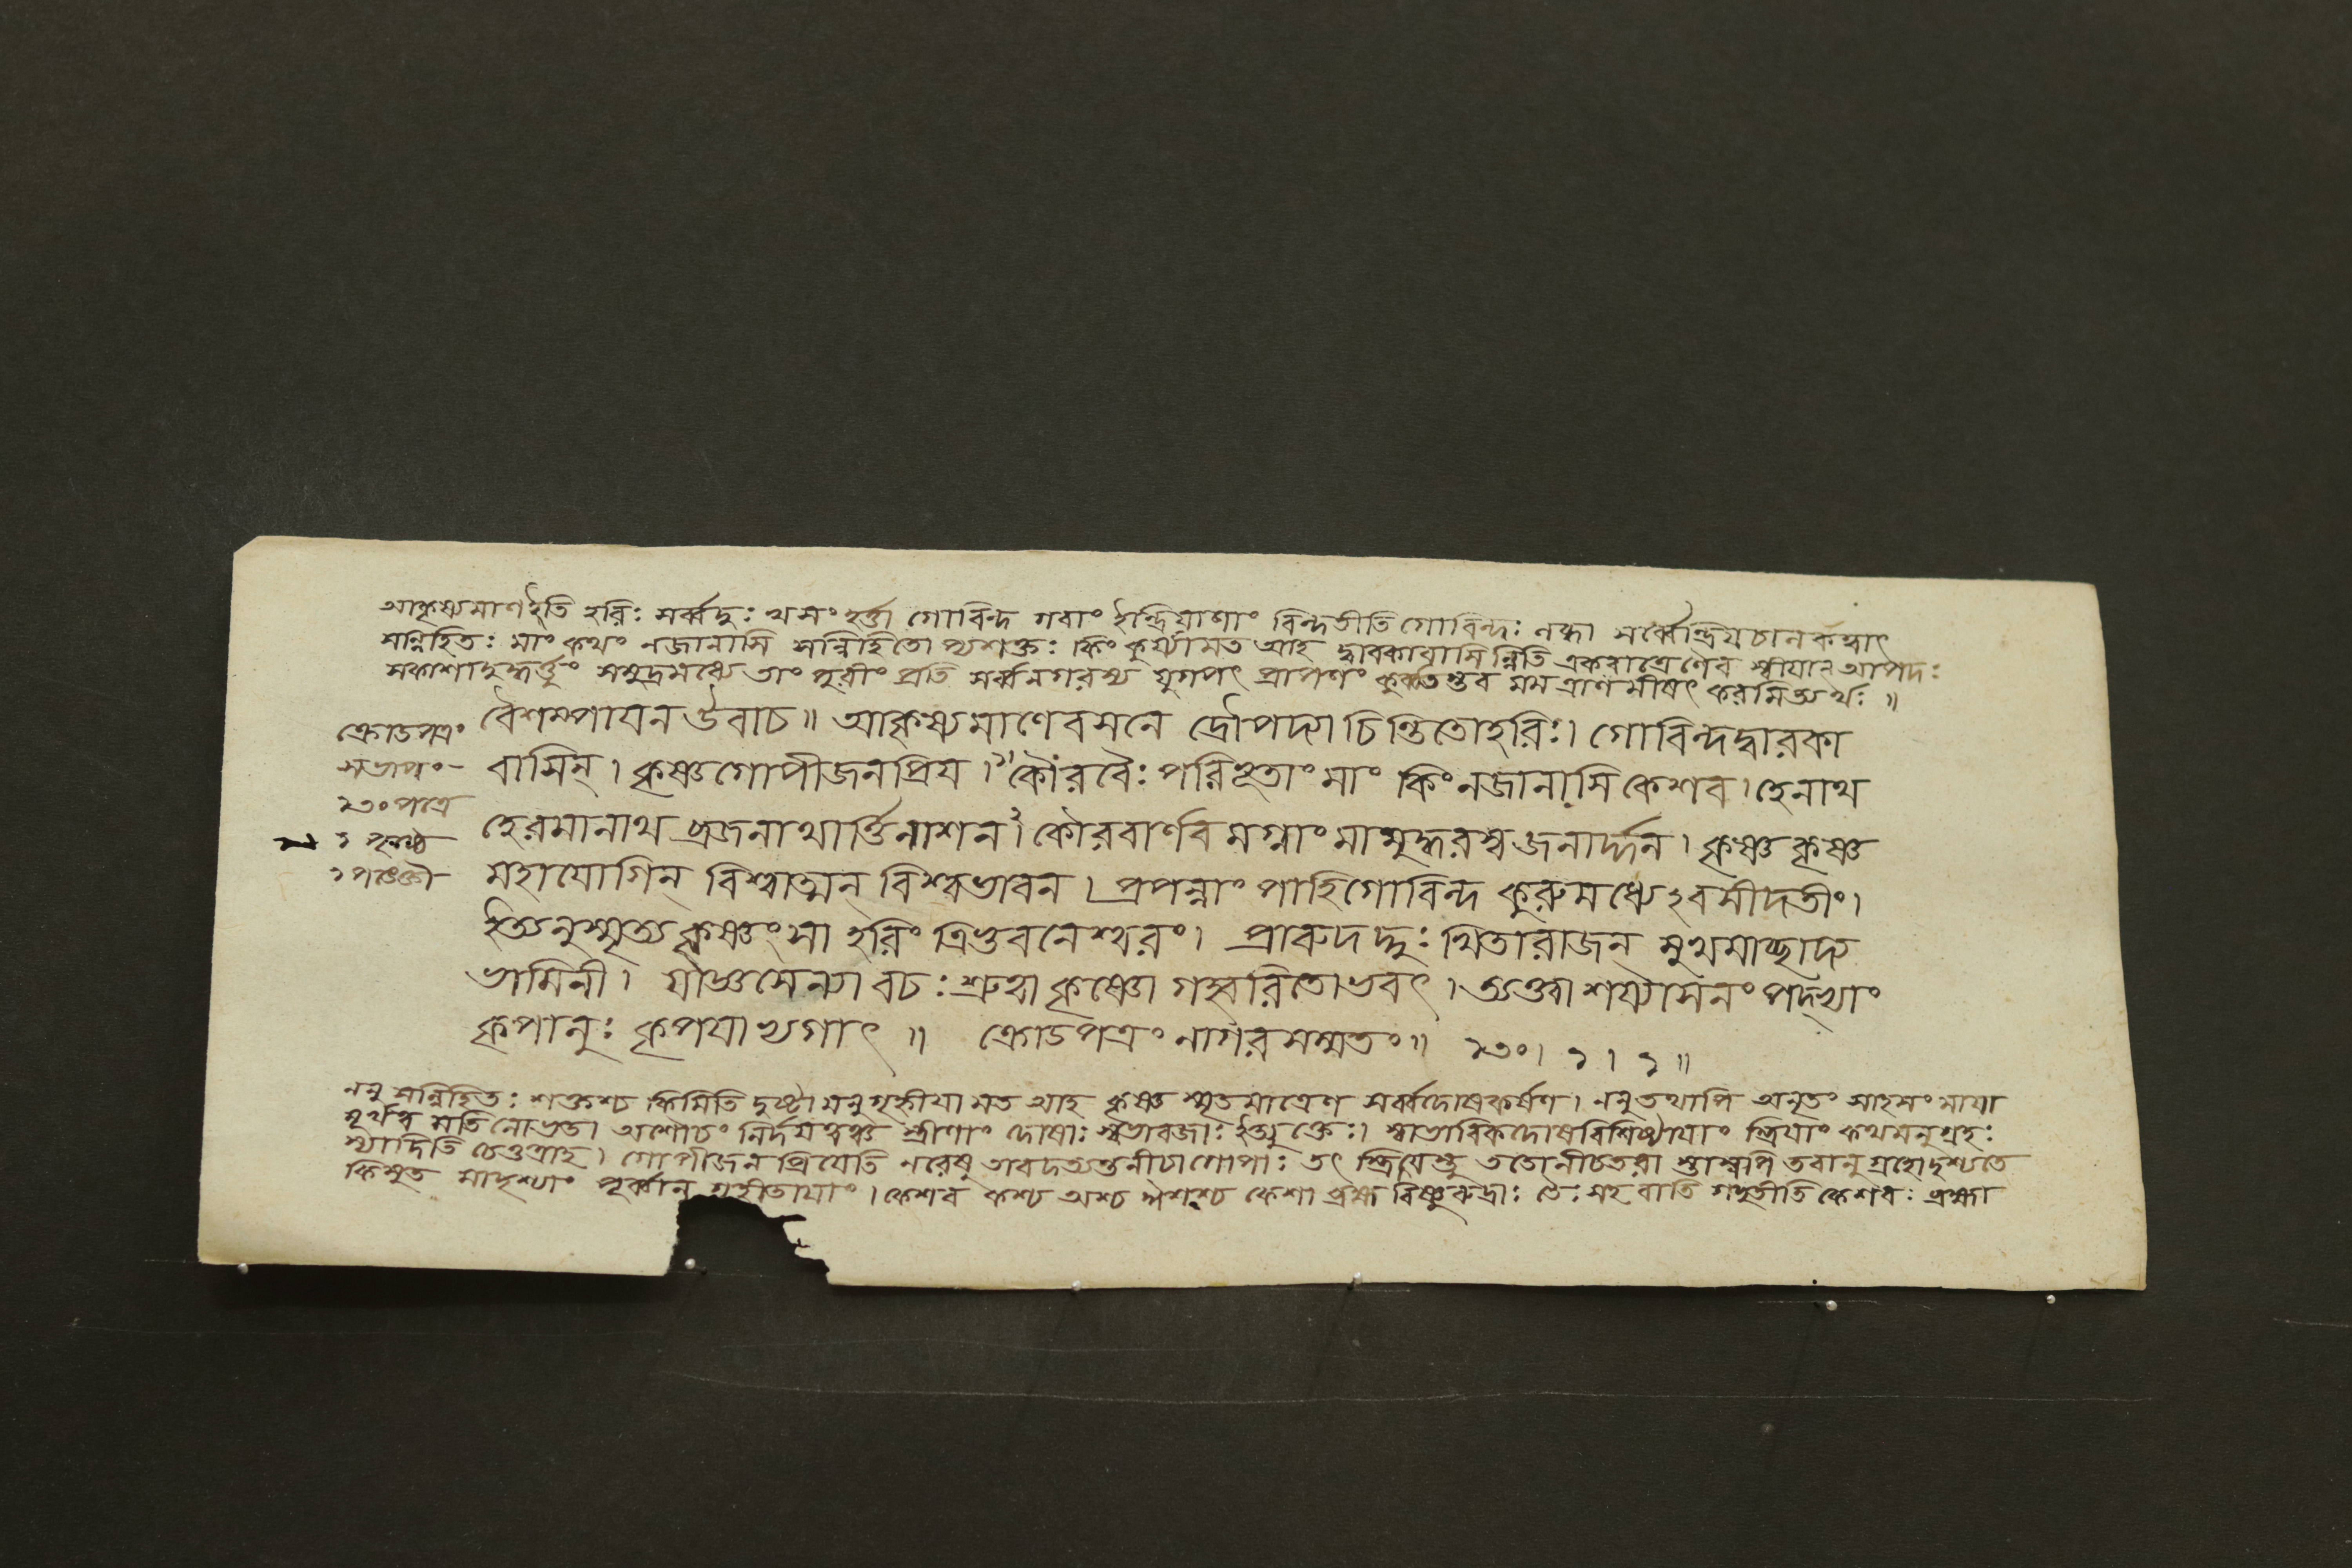 আকৃষ্যমাণইতি হরিঃ সর্ব্বদুঃখসংহর্ত্তা গোবিন্দ গবাং ইন্দ্রিয়াণাং বিন্দতীতি গোবিন্দঃ সর্ব্বেন্দ্রিয়চালকত্বাৎ
সন্নিহিতঃ মাং কথং নজানাসি সন্নিহিতোপ্যশক্তঃ কিং কুর্য্যামত আহ দ্বারকাবাসিন্নিতি একরাত্রেণৈব আপদঃ
সকাশাদুদ্ধর্ত্তুং সমুদ্রমধ্যে তাং পুরীং প্রতি সর্ব্বনগরস্য যুগপৎ প্রাপণং কুর্ব্বতস্তব মম ত্রাণমীষৎ করমিত্যর্থঃ ॥
বৈশম্পায়ন উবাচ ॥ আকৃষ্যমাণে বসনে দ্রৌপদ্যা চিন্তিতোহরিঃ। গোবিন্দদ্বারকা
বাসিন্ । কৃষ্ণগোপীজনপ্রিয় । কৌরবৈঃ পরিভূতাং মাং কিং নজানাসি কেশব । হেনাথ
হেরমানাথ ব্রজনাথার্ত্তিনাশন । কৌরবার্ণবমগ্নাং মামুদ্ধরস্ব জনার্দ্দন । কৃষ্ণ কৃষ্ণ
মহাযোগিন্ বিশ্বাত্মন্ বিশ্বভাবন । প্রপন্নাং পাহিগোবিন্দ কুরুমধ্যেঽবসীদতীং।
ইত্যনুস্মৃত্য কৃষ্ণং সা হরিং ত্রিভুবনেশ্বরং। প্রারুদদ্দুঃখিতারাজন্ মুখমাচ্ছাদ্য
ভামিনী। যাজ্ঞসেন্যা বচঃ শ্রুত্বা কৃষ্ণো গহ্বরিতোভবৎ । ত্যক্ত্বা শয্যাসনং পদ্ভ্যাং
কৃপালুঃ কৃপয়াভ্যগাৎ ॥ ক্রোডপত্রং নাগরসম্মতং॥ ২৩০। ১ । ১ ॥
ক্রোডপত্রং
সভাপং
২৩০ পত্রে
১ পৃষ্ঠে
১ পঙক্তৌ
ননু সন্নিহিতঃ শক্তশ্চ কিমিতি দুষ্টামনুগৃহ্ণীয়ামত আহ কৃষ্ণ স্মৃতমাত্রেণ সর্ব্বদোষকর্ষণ। ননু তথাপি অনৃতং সাহসং মায়া
মূর্খত্বমতিলোভতা অশৌচং নির্দয়ত্বঞ্চ স্ত্রীণাং দোষাঃ স্বভাবজাঃ ইত্যুক্তেঃ। স্বাভাবিকদোষবিশিষ্টায়াং স্ত্রিয়াং কথমনুগ্রহঃ
স্যাদিতি চেত্তত্রাহ। গোপীজনপ্রিয়েতি নরেষু তাবদত্যন্তনীচাগোপাঃ তৎ স্ত্রিয়স্তু ততোনীচতরা স্তাস্বপি তবানুগ্রহোদৃশ্যতে
কিমুত মাদৃশ্যাং গৃহীতায়াং । কেশব কশ্চ অশ্চ ঈশশ্চ কেশা ব্রহ্ম বিষ্ণুরুদ্রাঃ তৈঃ সহ বাতি গচ্ছতীতি কেশবঃ ব্রহ্মা